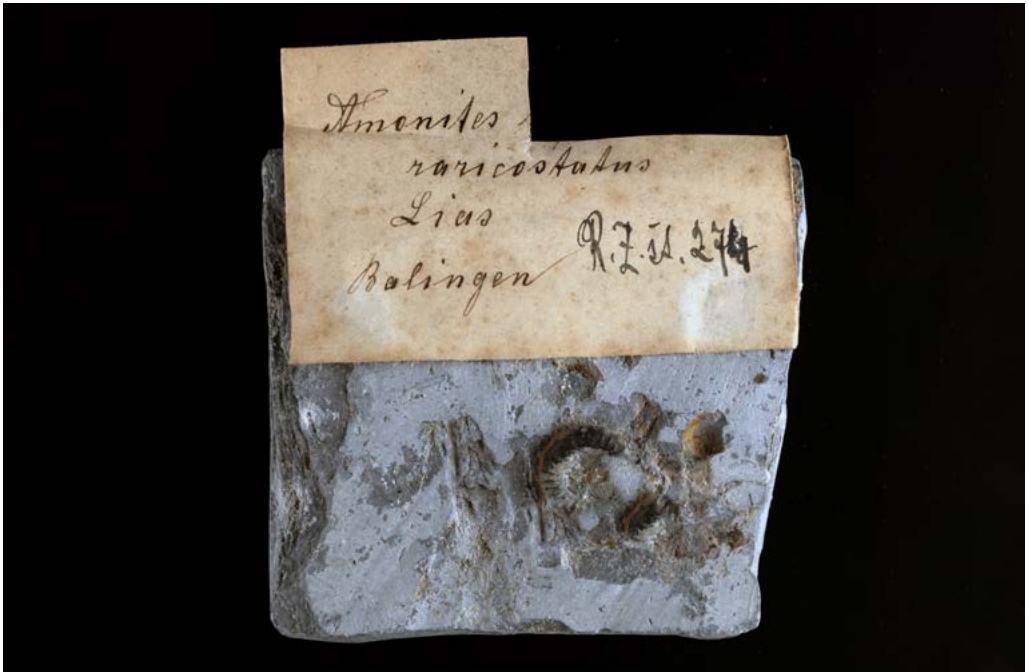 Amonites
raricostatus
Lias
Balingen
R.Z.št. 274